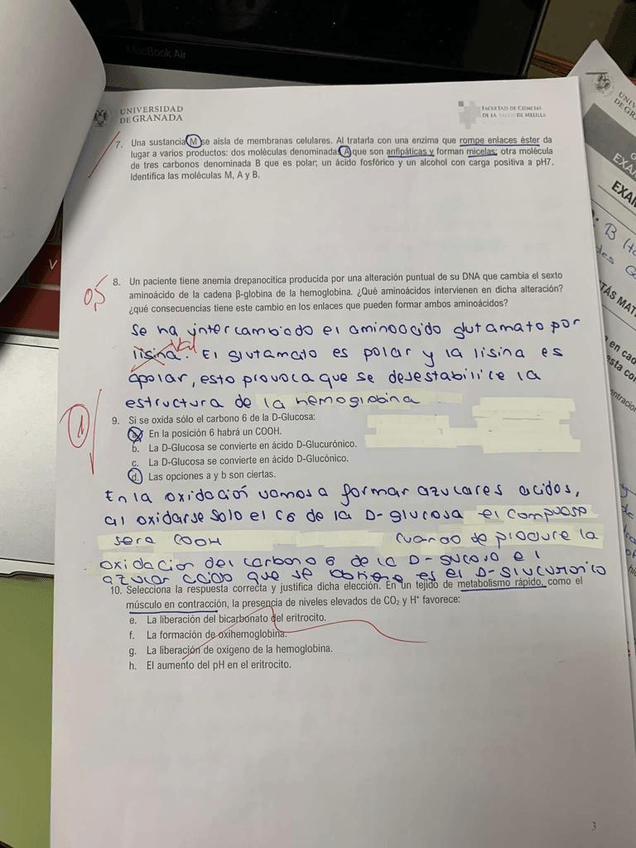 MacBook Air
UNIVERSIDAD
DE GRANADA
FACULTAD DE CIENCIAS
DE LA SALUD DE MELILLA
7. Una sustancia M se aisla de membranas celulares. Al tratarla con una enzima que rompe enlaces éster da
lugar a varios productos: dos moléculas denominadas A que son anfipáticas y forman micelas; otra molécula
de tres carbonos denominada B que es polar; un ácido fosfórico y un alcohol con carga positiva a pH7.
Identifica las moléculas M, A y B.
0,5
8. Un paciente tiene anemia drepanocítica producida por una alteración puntual de su DNA que cambia el sexto
aminoácido de la cadena β-globina de la hemoglobina. ¿Qué aminoácidos intervienen en dicha alteración?
¿qué consecuencias tiene este cambio en los enlaces que pueden formar ambos aminoácidos?
Se ha intercambiado el aminoácido glutamato por
Val
lisina. El glutamato es polar y la lisina es
apolar, esto provoca que se desestabilice la
estructura de la hemoglobina
1
9. Si se oxida sólo el carbono 6 de la D-Glucosa:
a. En la posición 6 habrá un COOH.
b. La D-Glucosa se convierte en ácido D-Glucurónico.
c. La D-Glucosa se convierte en ácido D-Glucónico.
d. Las opciones a y b son ciertas.
En la oxidación vamos a formar azucares acidos,
al oxidarse solo el C6 de la D-glucosa el compuesto
sera COOH Cuando se produce la
oxidacion del carbono 6 de la D-glucosa el
azucar acido que se obtiene es el D-glucuronico
10. Selecciona la respuesta correcta y justifica dicha elección. En un tejido de metabolismo rápido, como el
músculo en contracción, la presencia de niveles elevados de CO₂ y H⁺ favorece:
e. La liberación del bicarbonato del eritrocito.
f. La formación de oxihemoglobina.
g. La liberación de oxígeno de la hemoglobina.
h. El aumento del pH en el eritrocito.
3